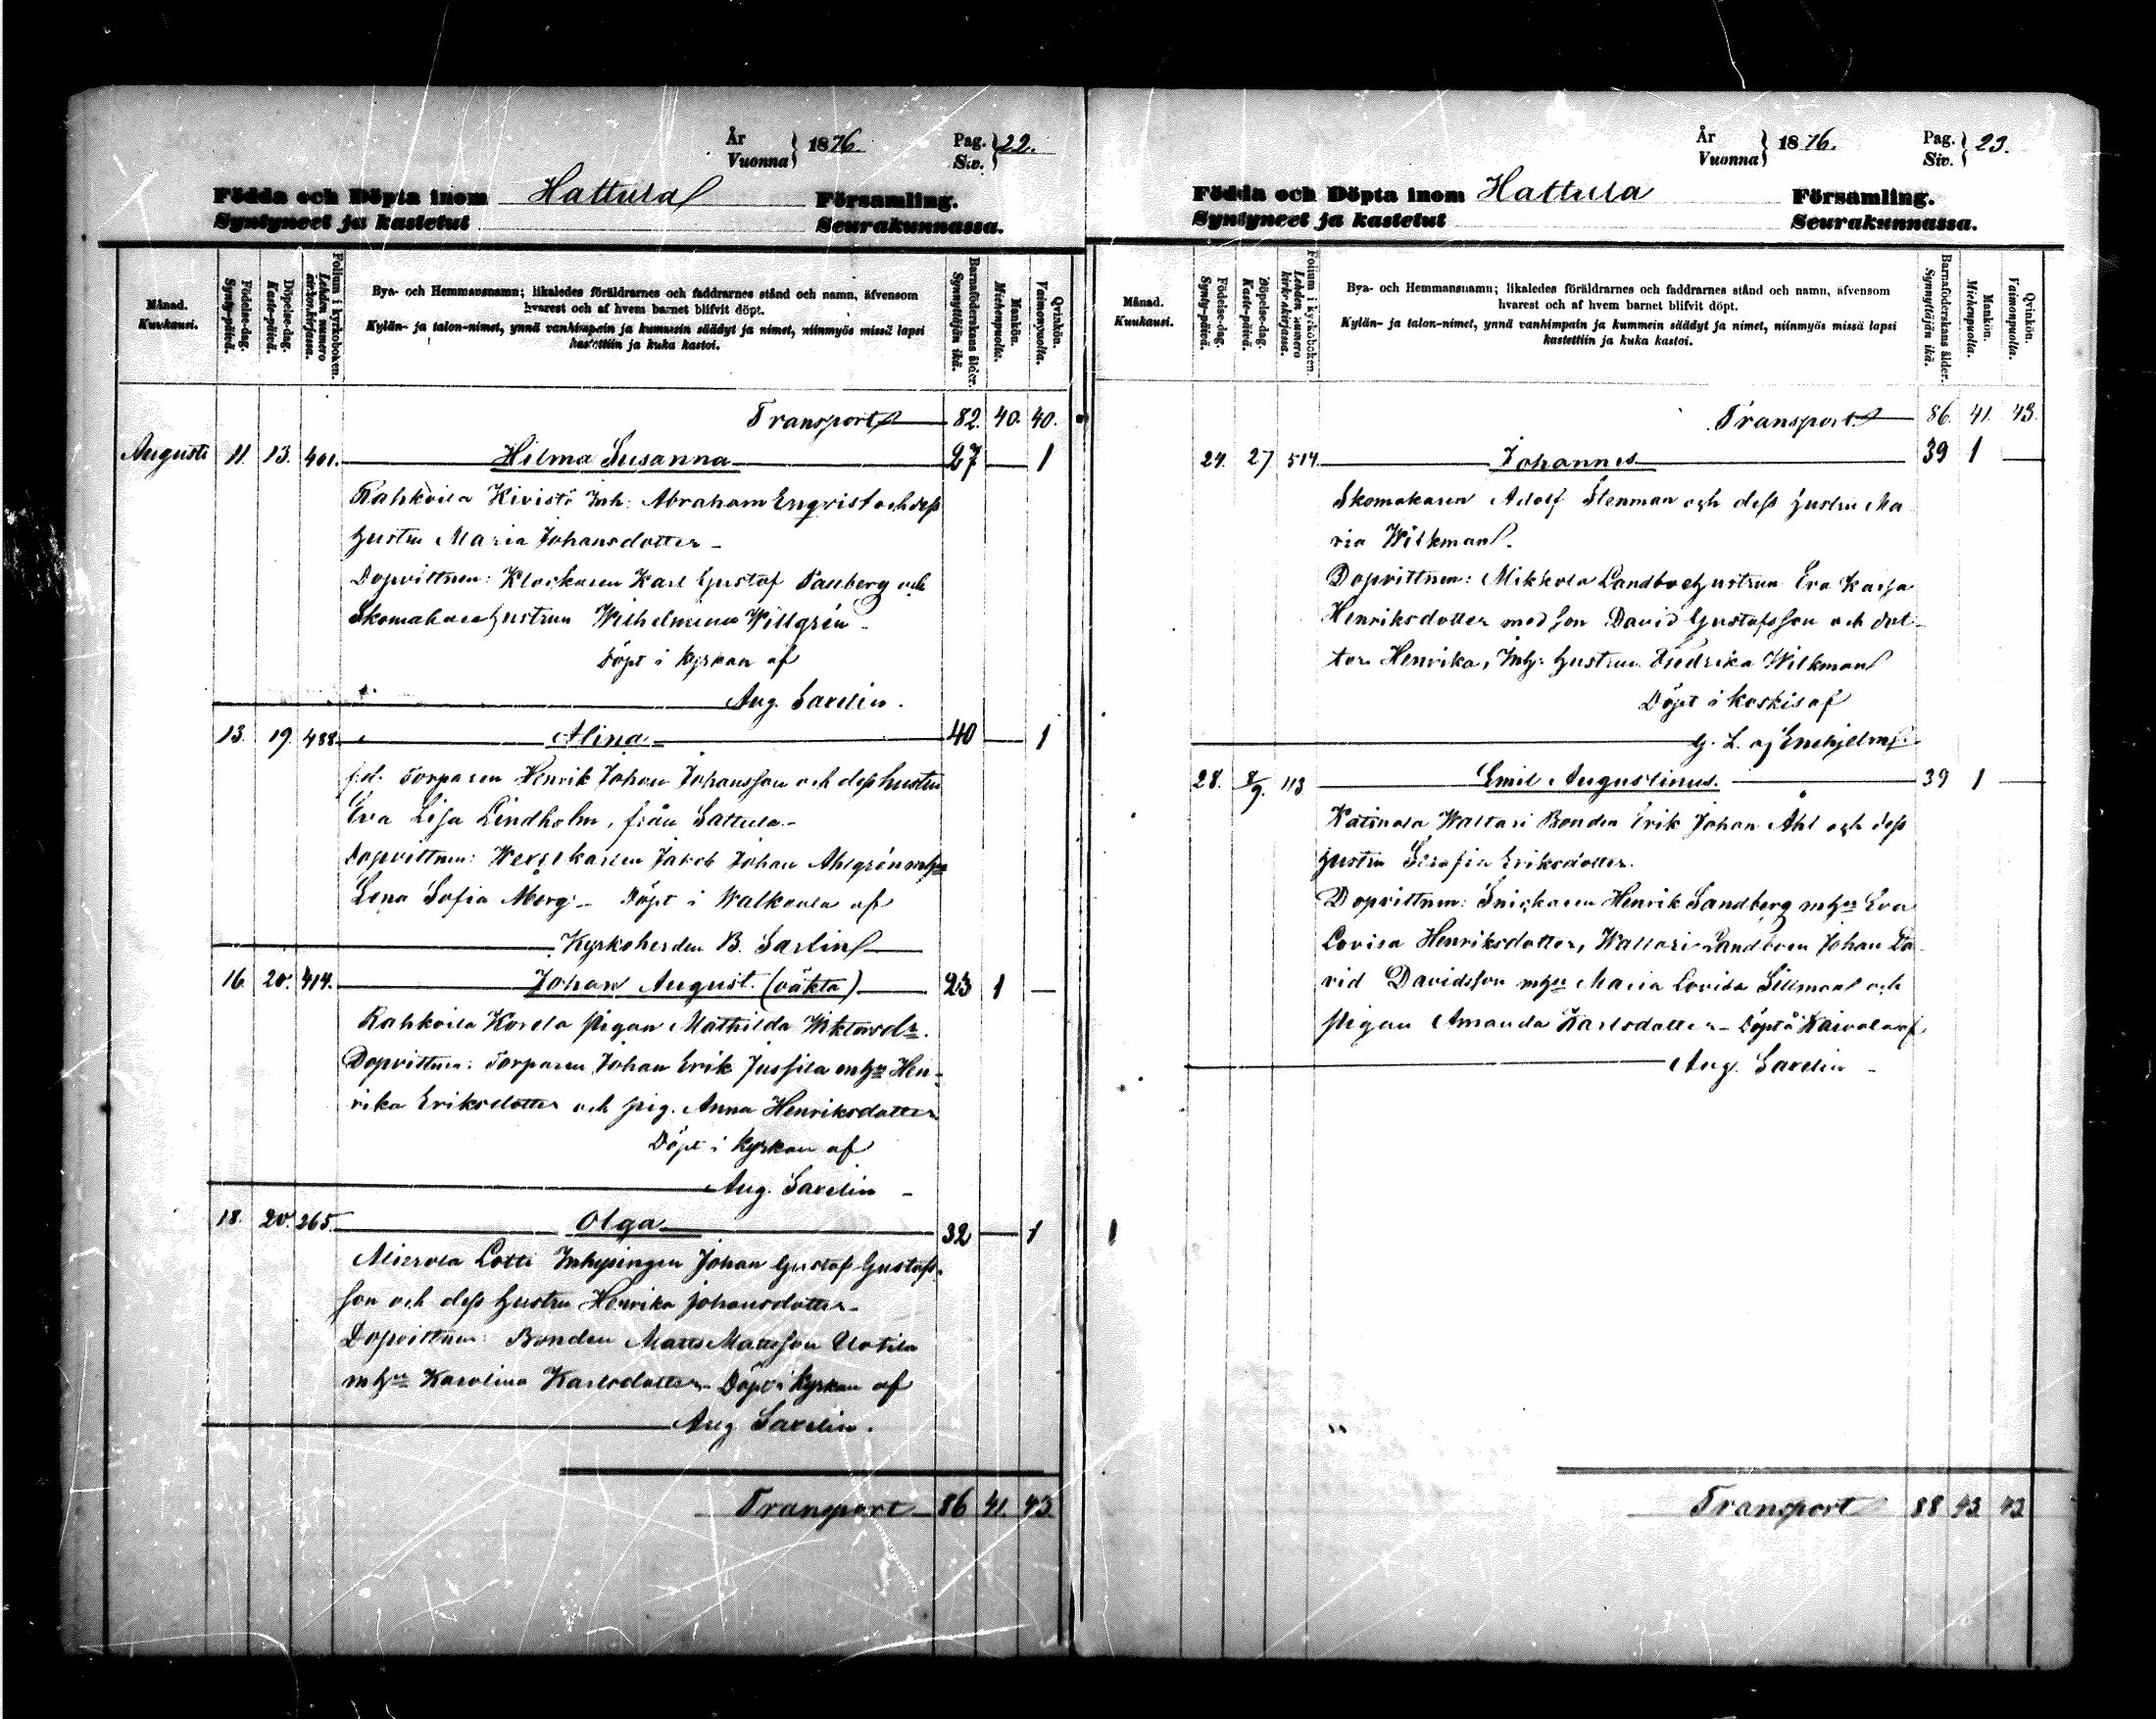 År
Vuonna } 1876
Pag.
Siv. } 22.
Födda och Döpta inom Hattula Församling.
Syntyneet ja kastetut Seurakunnassa.
Månad.
Kuukausi.
Födelse-dag.
Synty-päivä.
Döpelse-dag.
Kaste-päivä.
Folium i kyrkoboken.
Lehden numero
kirkonkirjassa.
Bya- och Hemmansnamn; likaledes föräldrarnes och faddrarnes stånd och namn, äfvensom
hvarest och af hvem barnet blifvit döpt.
Kylän- ja talon-nimet, ynnä vanhimpain ja kummein säädyt ja nimet, niinmyös missä lapsi
kastettiin ja kuka kastoi.
Barnaföderskans ålder.
Synnyttäjän ikä.
Mankön.
Miehenpuolta.
Qvinkön.
Vaimonpuolta.
Transport 82. 40. 40.
Augusti 11. 13. 401. Hilma Susanna 27 1
Rahkoila Kivistö Inh. Abraham Enqvist och dess
hustru Maria Johansdotter
Dopvittnen: Klockaren Karl Gustaf Tallberg och
Skomakarehustrun Wilhelmina Willgrén
Döpt i kyrkan af
Aug. Saxelin.
13. 19. 488. Alina 40 1
f.d. Torparen Henrik Johan Johansson och dess hustru
Eva Lisa Lindholm, från Sattula
Dopvittnen: Jakob Johan Ahlgrén mhu
Lena Sofia Åberg Döpt i Walkeala af
Kyrkoherden B. Sarlin
16. 20. 414. Johan August. (oäkta) 23 1
Rahkoila Korela pigan Mathilda Wiktorsdr.
Dopvittnen: Torparen Johan Erik Jussila mhu Hen-
rika Eriksdotter och pig. Anna Henriksdotter
Döpt i kyrkan af
Aug. Saxelin
18. 20. 265. Olga 32 1
Mierola Lotti Inhysingen Johan Gustaf Gustafs-
son och dess hustru Henrika Johansdotter
Dopvittnen: Bonden Matts Mattsson Uotila
mhu Karolina Karlsdotter Döpt i kyrkan af
Aug. Saxelin.
Transport 86 41. 43.
År
Vuonna } 1876.
Pag.
Siv. } 23.
Födda och Döpta inom Hattula Församling.
Syntyneet ja kastetut Seurakunnassa.
Månad.
Kuukausi.
Födelse-dag.
Synty-päivä.
Döpelse-dag.
Kaste-päivä.
Folium i kyrkoboken.
Lehden numero
kirkonkirjassa.
Bya- och Hemmansnamn; likaledes föräldrarnes och faddrarnes stånd och namn, äfvensom
hvarest och af hvem barnet blifvit döpt.
Kylän- ja talon-nimet, ynnä vanhimpain ja kummein säädyt ja nimet, niinmyös missä lapsi
kastettiin ja kuka kastoi.
Barnaföderskans ålder.
Synnyttäjän ikä.
Mankön.
Miehenpuolta.
Qvinkön.
Vaimonpuolta.
Transport 86. 41. 43.
24. 27 514. Johannes 39 1
Skomakaren Adolf Stenman och dess hustru Ma
ria Wilkman.
Dopvittnen: Mikkola Landbohustrun Eva Kajsa
Henriksdotter med son David Gustafsson och dot-
ter Henrika, Inh: hustrun Fredrika Wilkman
Döpt i Koskis af
G. L. af Enehjelm.
28. 8/9. 113 Emil Augustinus. 39 1
Katinala Waltari Bonden Erik Johan Ahl och dess
hustru Serafia Eriksdotter.
Dopvittnen: Snickaren Henrik Sandberg mhu Eva
Lovisa Henriksdotter, Waltari Landboen Johan Da
vid Davidsson mhu Maria Lovisa Sillman och
pigan Amanda Karlsdotter Döpt i af
Aug. Saxelin
Transport 88 43 43